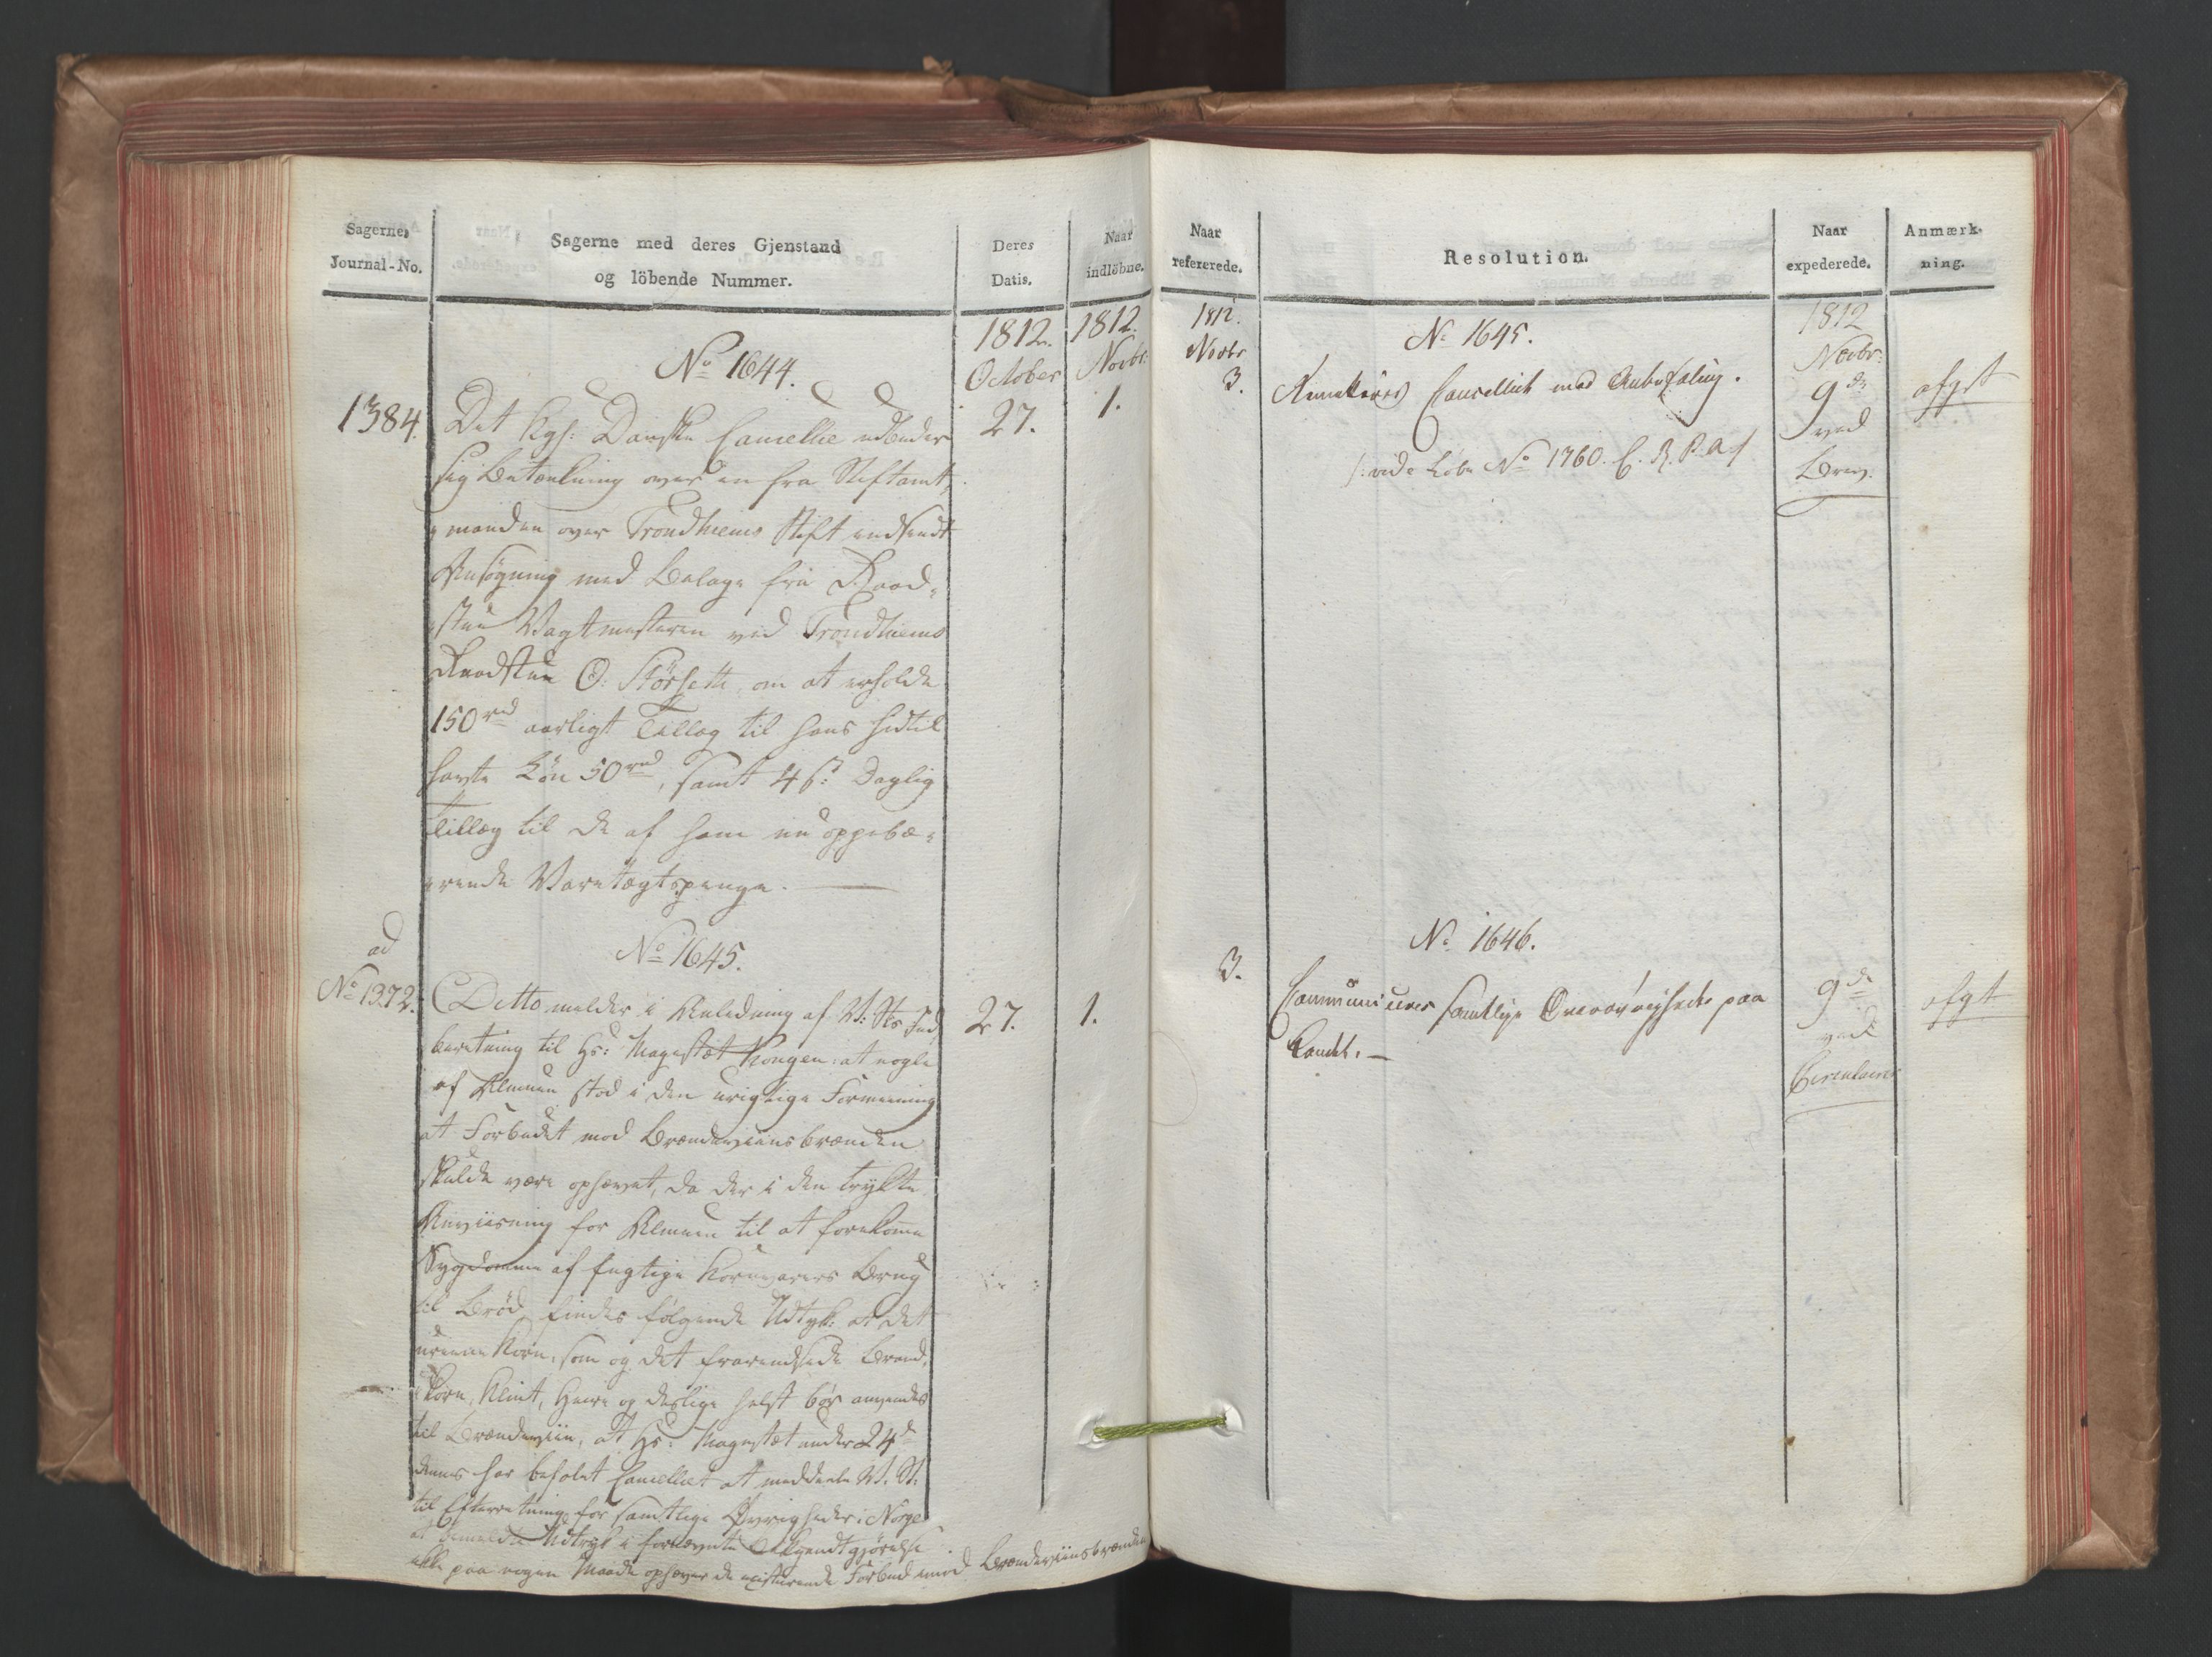 Sagernes
Journal-No.
Sagerne med deres Gjenstand
og löbende Nummer.
Deres
Datis.
Naar
indlöbne.
1812.
October
1812.
Novbr:
No 1644.
1384.
27.
1.
Det Kgs: Danske Cancellie udbeder
sig Betænkning over en fra Stiftamt„
„manden over Trondhiems Stift indsendt
Ansøgning med Bilage fra Raad„
„stue Vagtmesteren ved Trondhiems
Raadstue O: Störsett, om at erholde
150 rd aarligt Tillæg til hans hidtil
havte Lön 50 rd, samt 4 s: Daglig
Tillæg til de af ham nu oppebæ„
„rende Varetægtspenge.
ad
No 1372.
No 1645.
27.
1.
Ditto melder i Anledning af V: Sts Ind
beretning til Hs: Magestæt Kongen: at nogle
af Almuen stod i den urigtige Formeening
at Forbudet mod Brændeviinsbrænden
skulde være ophævet, da der i den trykte
Anviisning for Almuen til at forekomme
Sygdomme af fugtige Kornvarers Brug
til Bröd findes følgende Udtryk: at det
ureene Korn, som og det frarendsede Brand„
„korn, Klint, Heire og deslige helst bör anvendes
til Brændeviin, at Hs: Magestæt under 24de
dennes har befalet Cancelliet at meddeele V. St.
til Efterretning for samtlige Øvrigheder i Norge
at bemeldte Udtryk i fornævnte Bekjendtgjørelse
ikke paa nogen Maade ophæver de existerende Forbud imod Brændeviinsbrænden
Naar
refererede.
Resolution.
Naar
expederede.
Anmærk-
ning.
1812.
Novbr
3.
No 1645.
1812
Novbr:
9de
ved
Brev.
afgt
Cancelliet med Anbefaling.
/: vide Løbe No 1760. C. R. P. A /
3.
No 1646.
Communiceres samtlige Överövrigheder paa
Landet. —
9de
ved
Circulaire
afgt